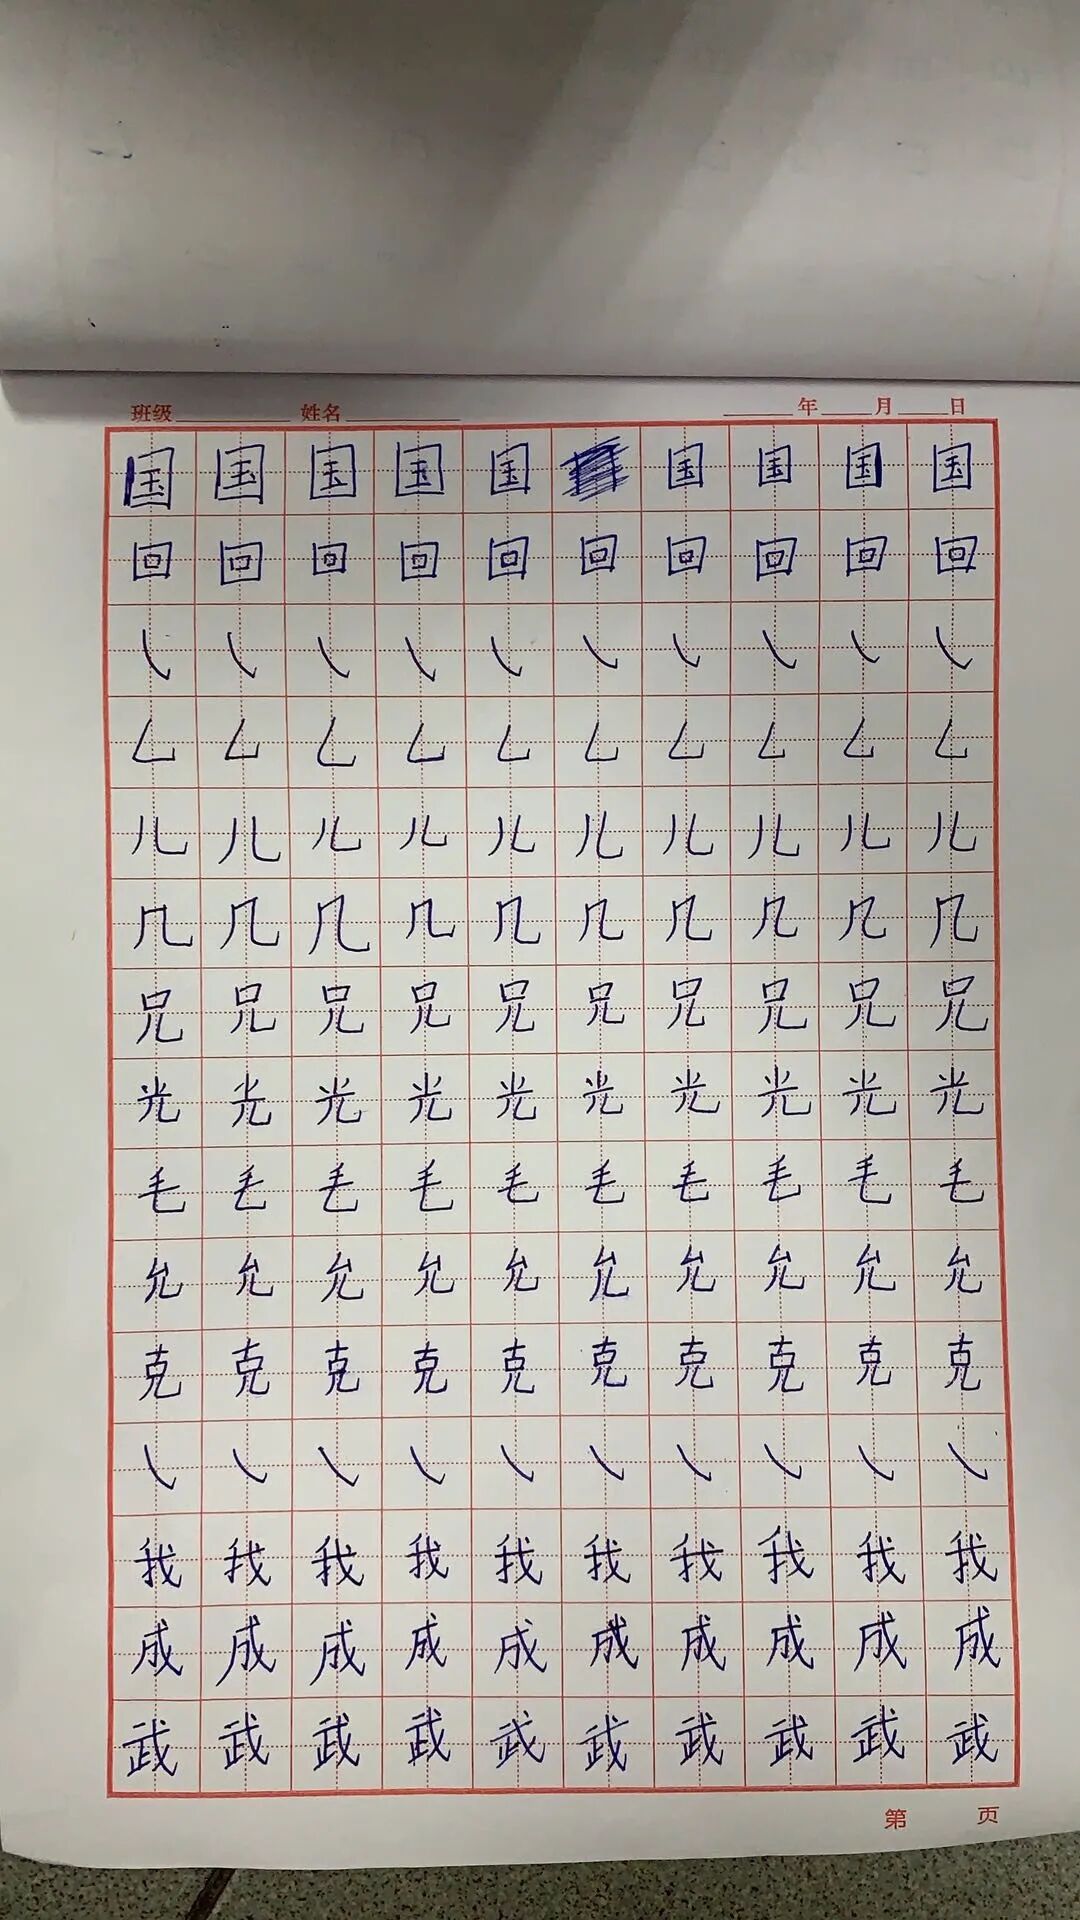 班级 姓名 年 月 日
国 国 国 国 国 国 国 国 国
回 回 回 回 回 回 回 回 回 回
㇂ ㇂ ㇂ ㇂ ㇂ ㇂ ㇂ ㇂ ㇂ ㇂
𠃊 𠃊 𠃊 𠃊 𠃊 𠃊 𠃊 𠃊 𠃊 𠃊
儿 儿 儿 儿 儿 儿 儿 儿 儿 儿
几 几 几 几 几 几 几 几 几 几
兄 兄 兄 兄 兄 兄 兄 兄 兄 兄
光 光 光 光 光 光 光 光 光 光
毛 毛 毛 毛 毛 毛 毛 毛 毛 毛
允 允 允 允 允 允 允 允 允 允
克 克 克 克 克 克 克 克 克 克
㇂ ㇂ ㇂ ㇂ ㇂ ㇂ ㇂ ㇂ ㇂ ㇂
我 我 我 我 我 我 我 我 我 我
成 成 成 成 成 成 成 成 成 成
武 武 武 武 武 武 武 武 武 武
第 页